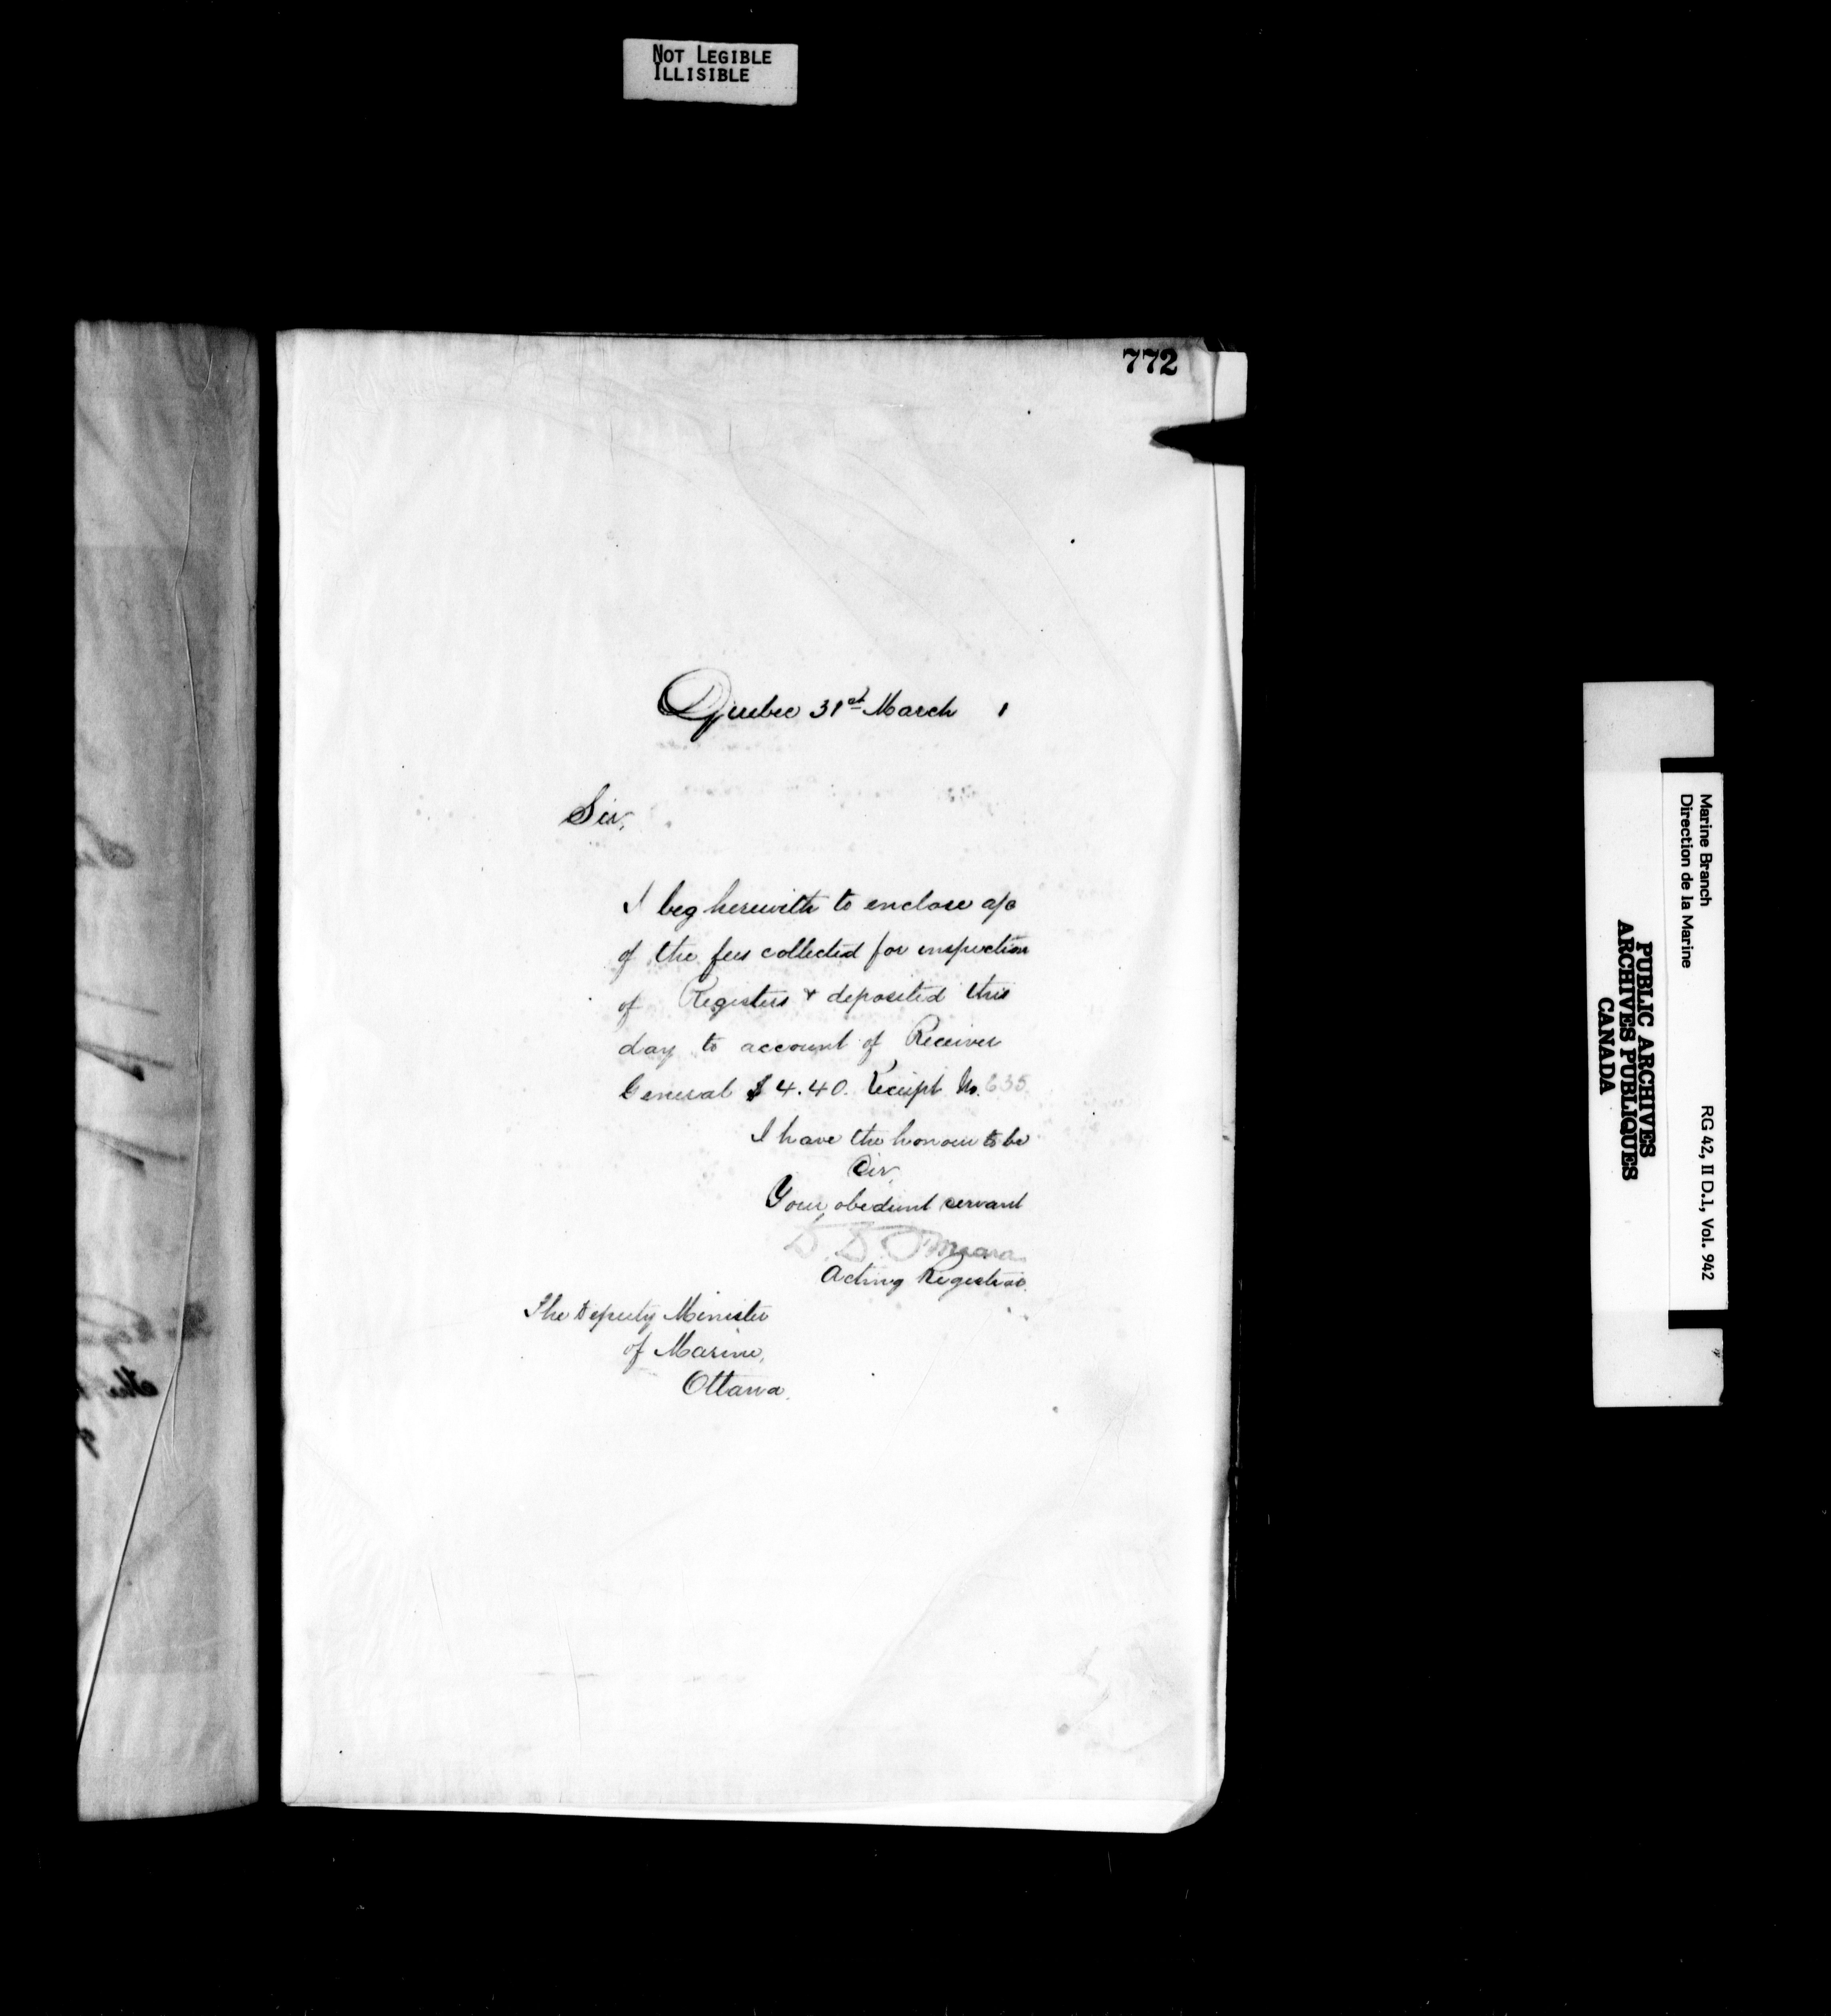 NOT LEGIBLE
ILLISIBLE
772
Quebec 31st March 1
Sir,
I beg herewith to enclose a/c
of the fees collected for inspection
of Registers & deposited this
day to account of Receiver
General $ 4.40. Receipt No. 635
I have the honour to be
Sir,
Your obedient servant
Acting Registrar.
The Deputy Minister
of Marine,
Ottawa.
Marine Branch
Direction de la Marine
RG 42, II D.1, Vol. 942
PUBLIC ARCHIVES
ARCHIVES PUBLIQUES
CANADA